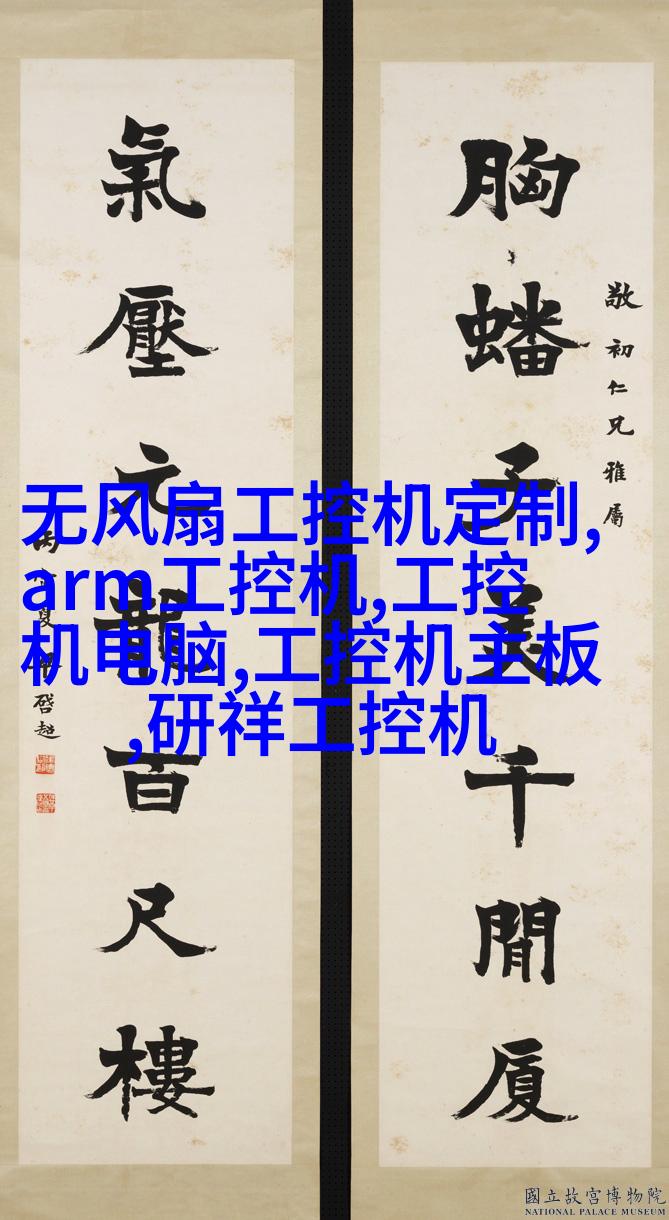 敬初仁兄雅屬
胸蟠子美千間厦
氣壓元龍百尺樓
啓超
无风扇工控机定制,
arm工控机,工控
机电脑,工控机主板
,研祥工控机
國立故宮博物院
NATIONAL PALACE MUSEUM